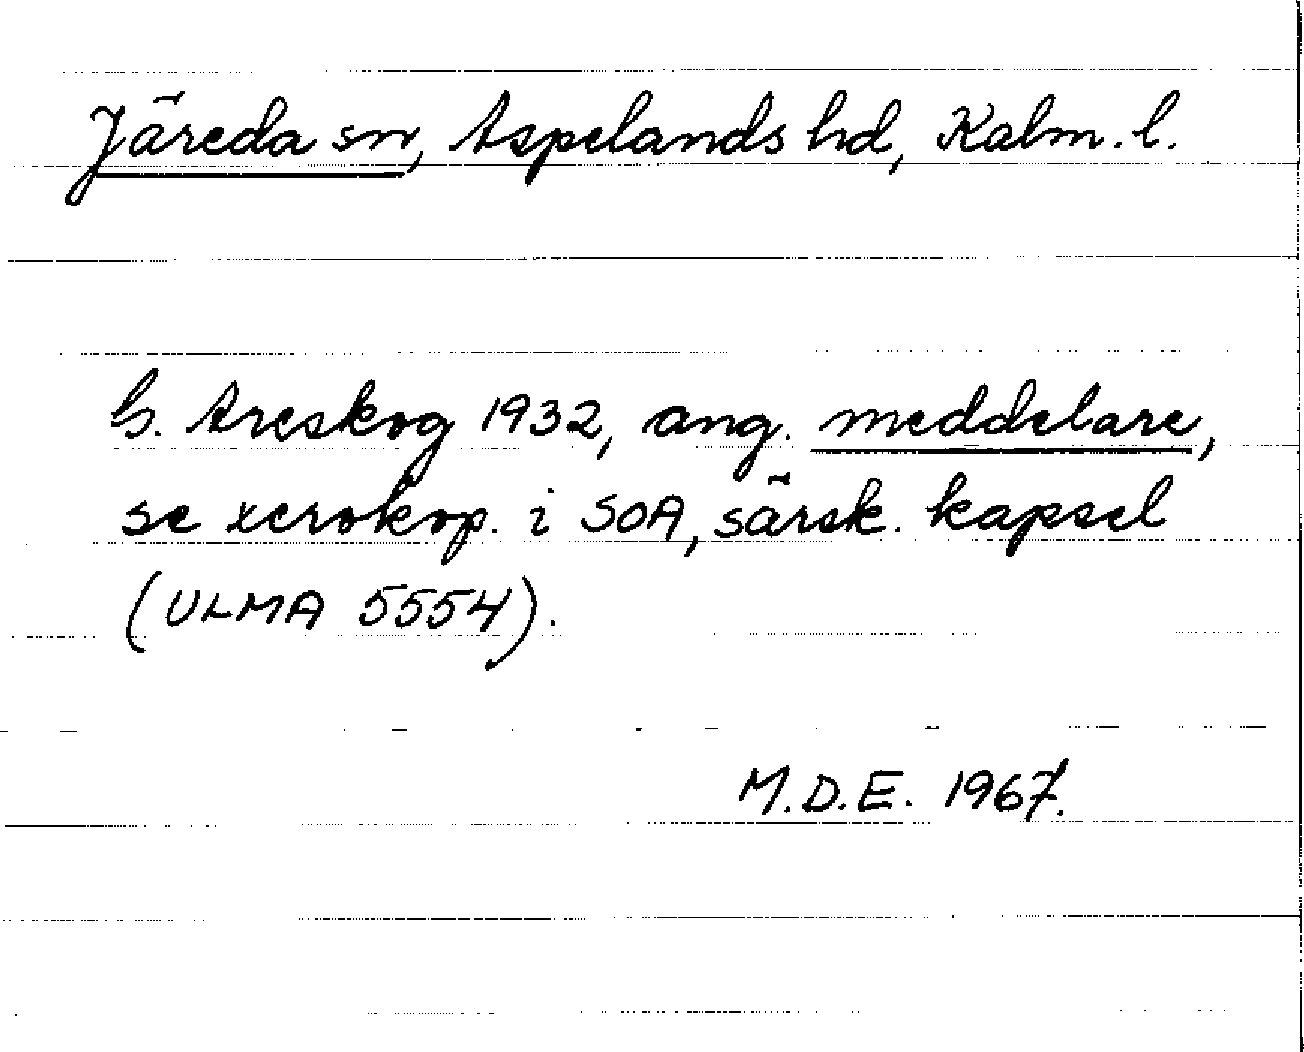 Järeda sn, Aspelands hd, Kalm. l.
G. Areskog 1932, ang. meddelare,
se xerokop. i SOA, särsk. kapsel
(ULMA 5554).
M.D.E. 1967.